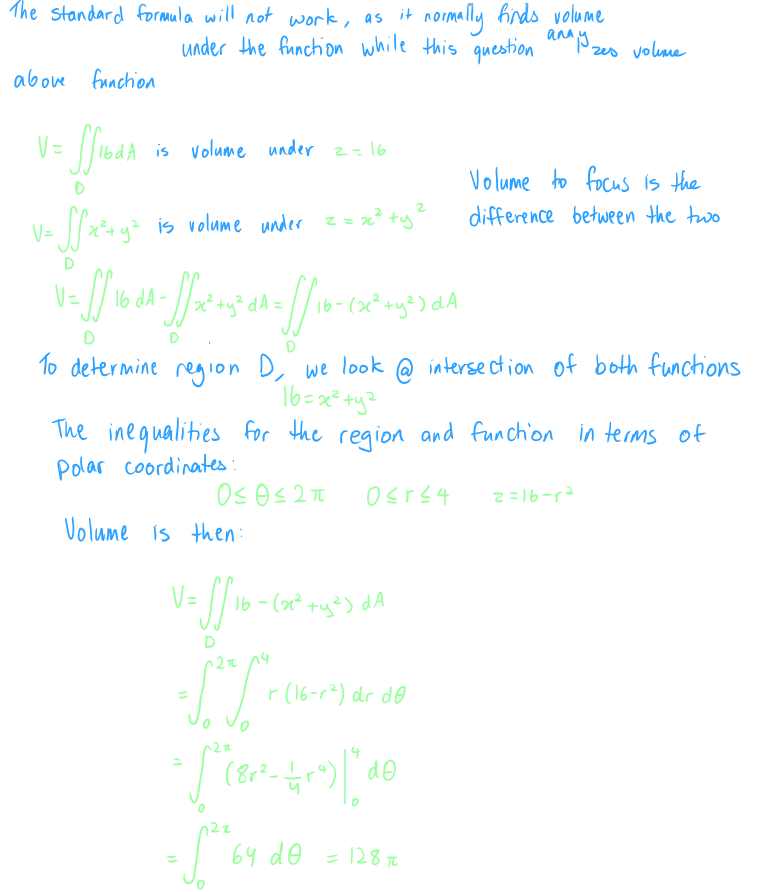 The standard formula will not work, as it normally finds volume
under the function while this question anayzes volume
above function
V = ∬_D 16 dA is volume under z = 16
V = ∬_D x² + y² is volume under z = x² + y²
Volume to focus is the
difference between the two
V = ∬_D 16 dA - ∬_D x² + y² dA = ∬_D 16 - (x² + y²) dA
To determine region D, we look @ intersection of both functions
16 = x² + y²
The inequalities for the region and function in terms of
polar coordinates:
0 ≤ θ ≤ 2π 0 ≤ r ≤ 4 z = 16 - r²
Volume is then:
V = ∬_D 16 - (x² + y²) dA
= ∫_0^{2π} ∫_0^4 r (16 - r²) dr dθ
= ∫_0^{2π} (8r² - 1/4 r⁴) |_0^4 dθ
= ∫_0^{2π} 64 dθ = 128π